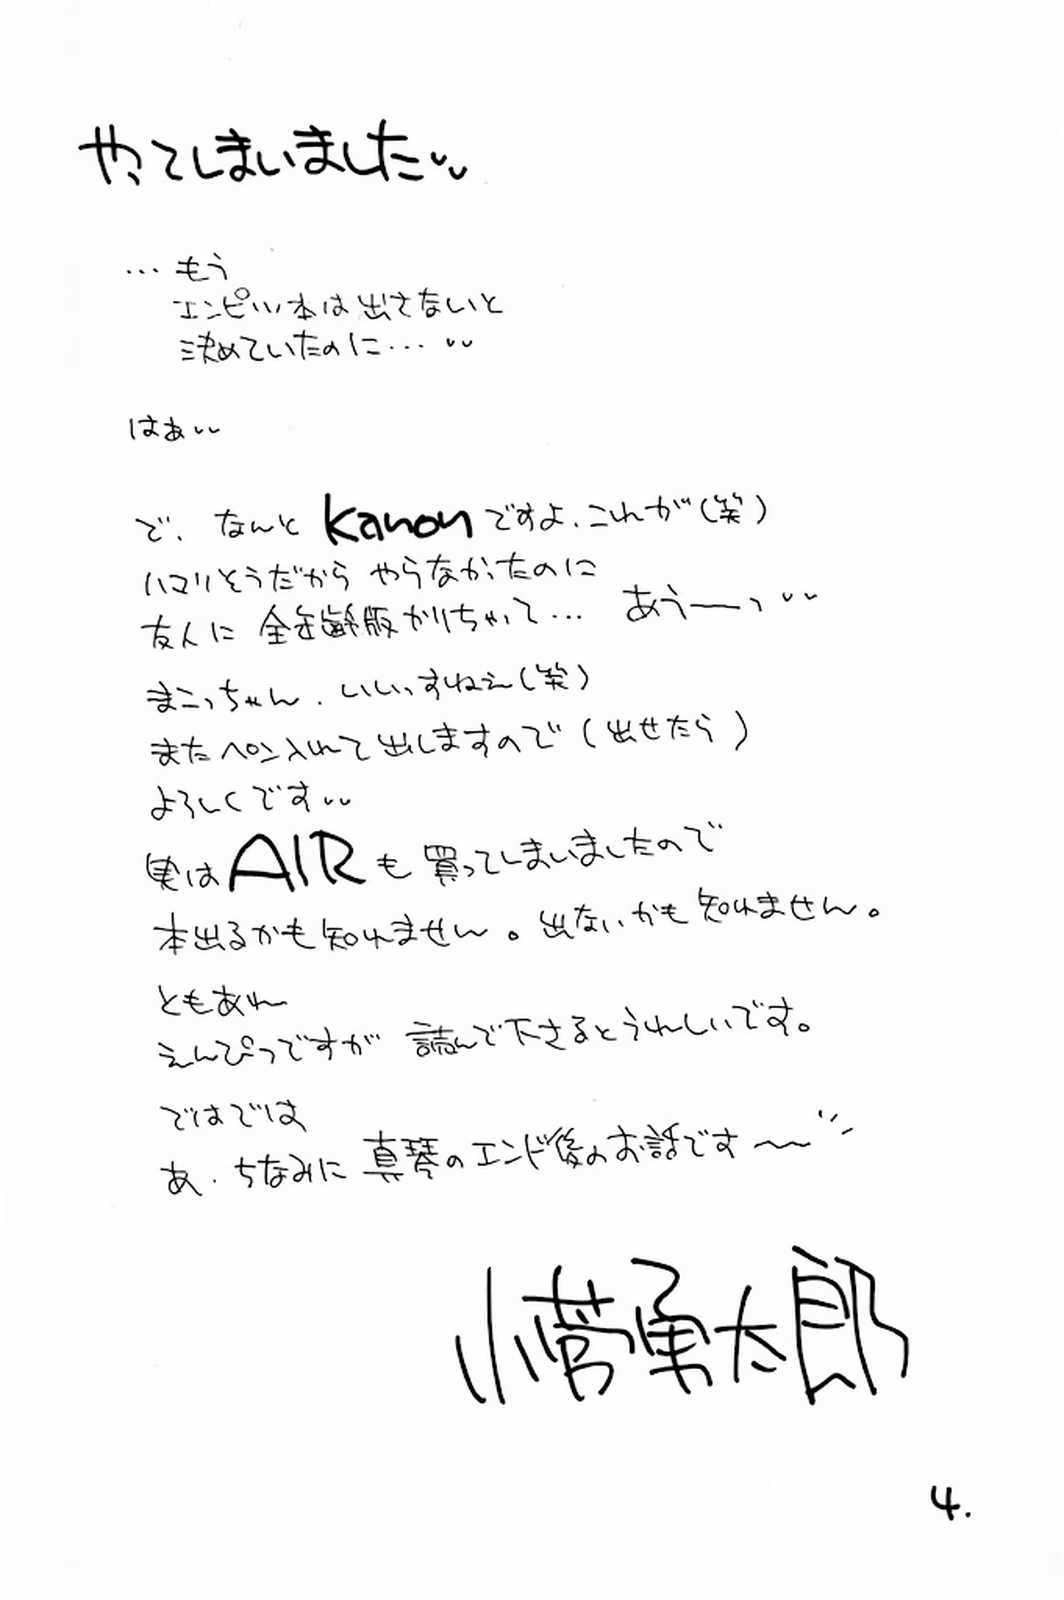 やってしまいました〃
…もう
エンピツ本は出さないと
決めていたのに…〃
はぁ〃
で、なんとkanonですよ、これが(笑)
ハマりそうだからやらなかったのに
友人に全年齢版かりちゃって… あぅーっ〃
まこっちゃん、いいっすねぇ(笑)
またペン入れて出しますので(出せたら)
よろしくです〃
実はAIRも買ってしまいましたので
本出るかも知れません。出ないかも知れません。
ともあれ
えんぴつですが読んで下さるとうれしいです。
ではでは
あ、ちなみに真琴のエンド後のお話です〜〜
小菅勇太郎
4.